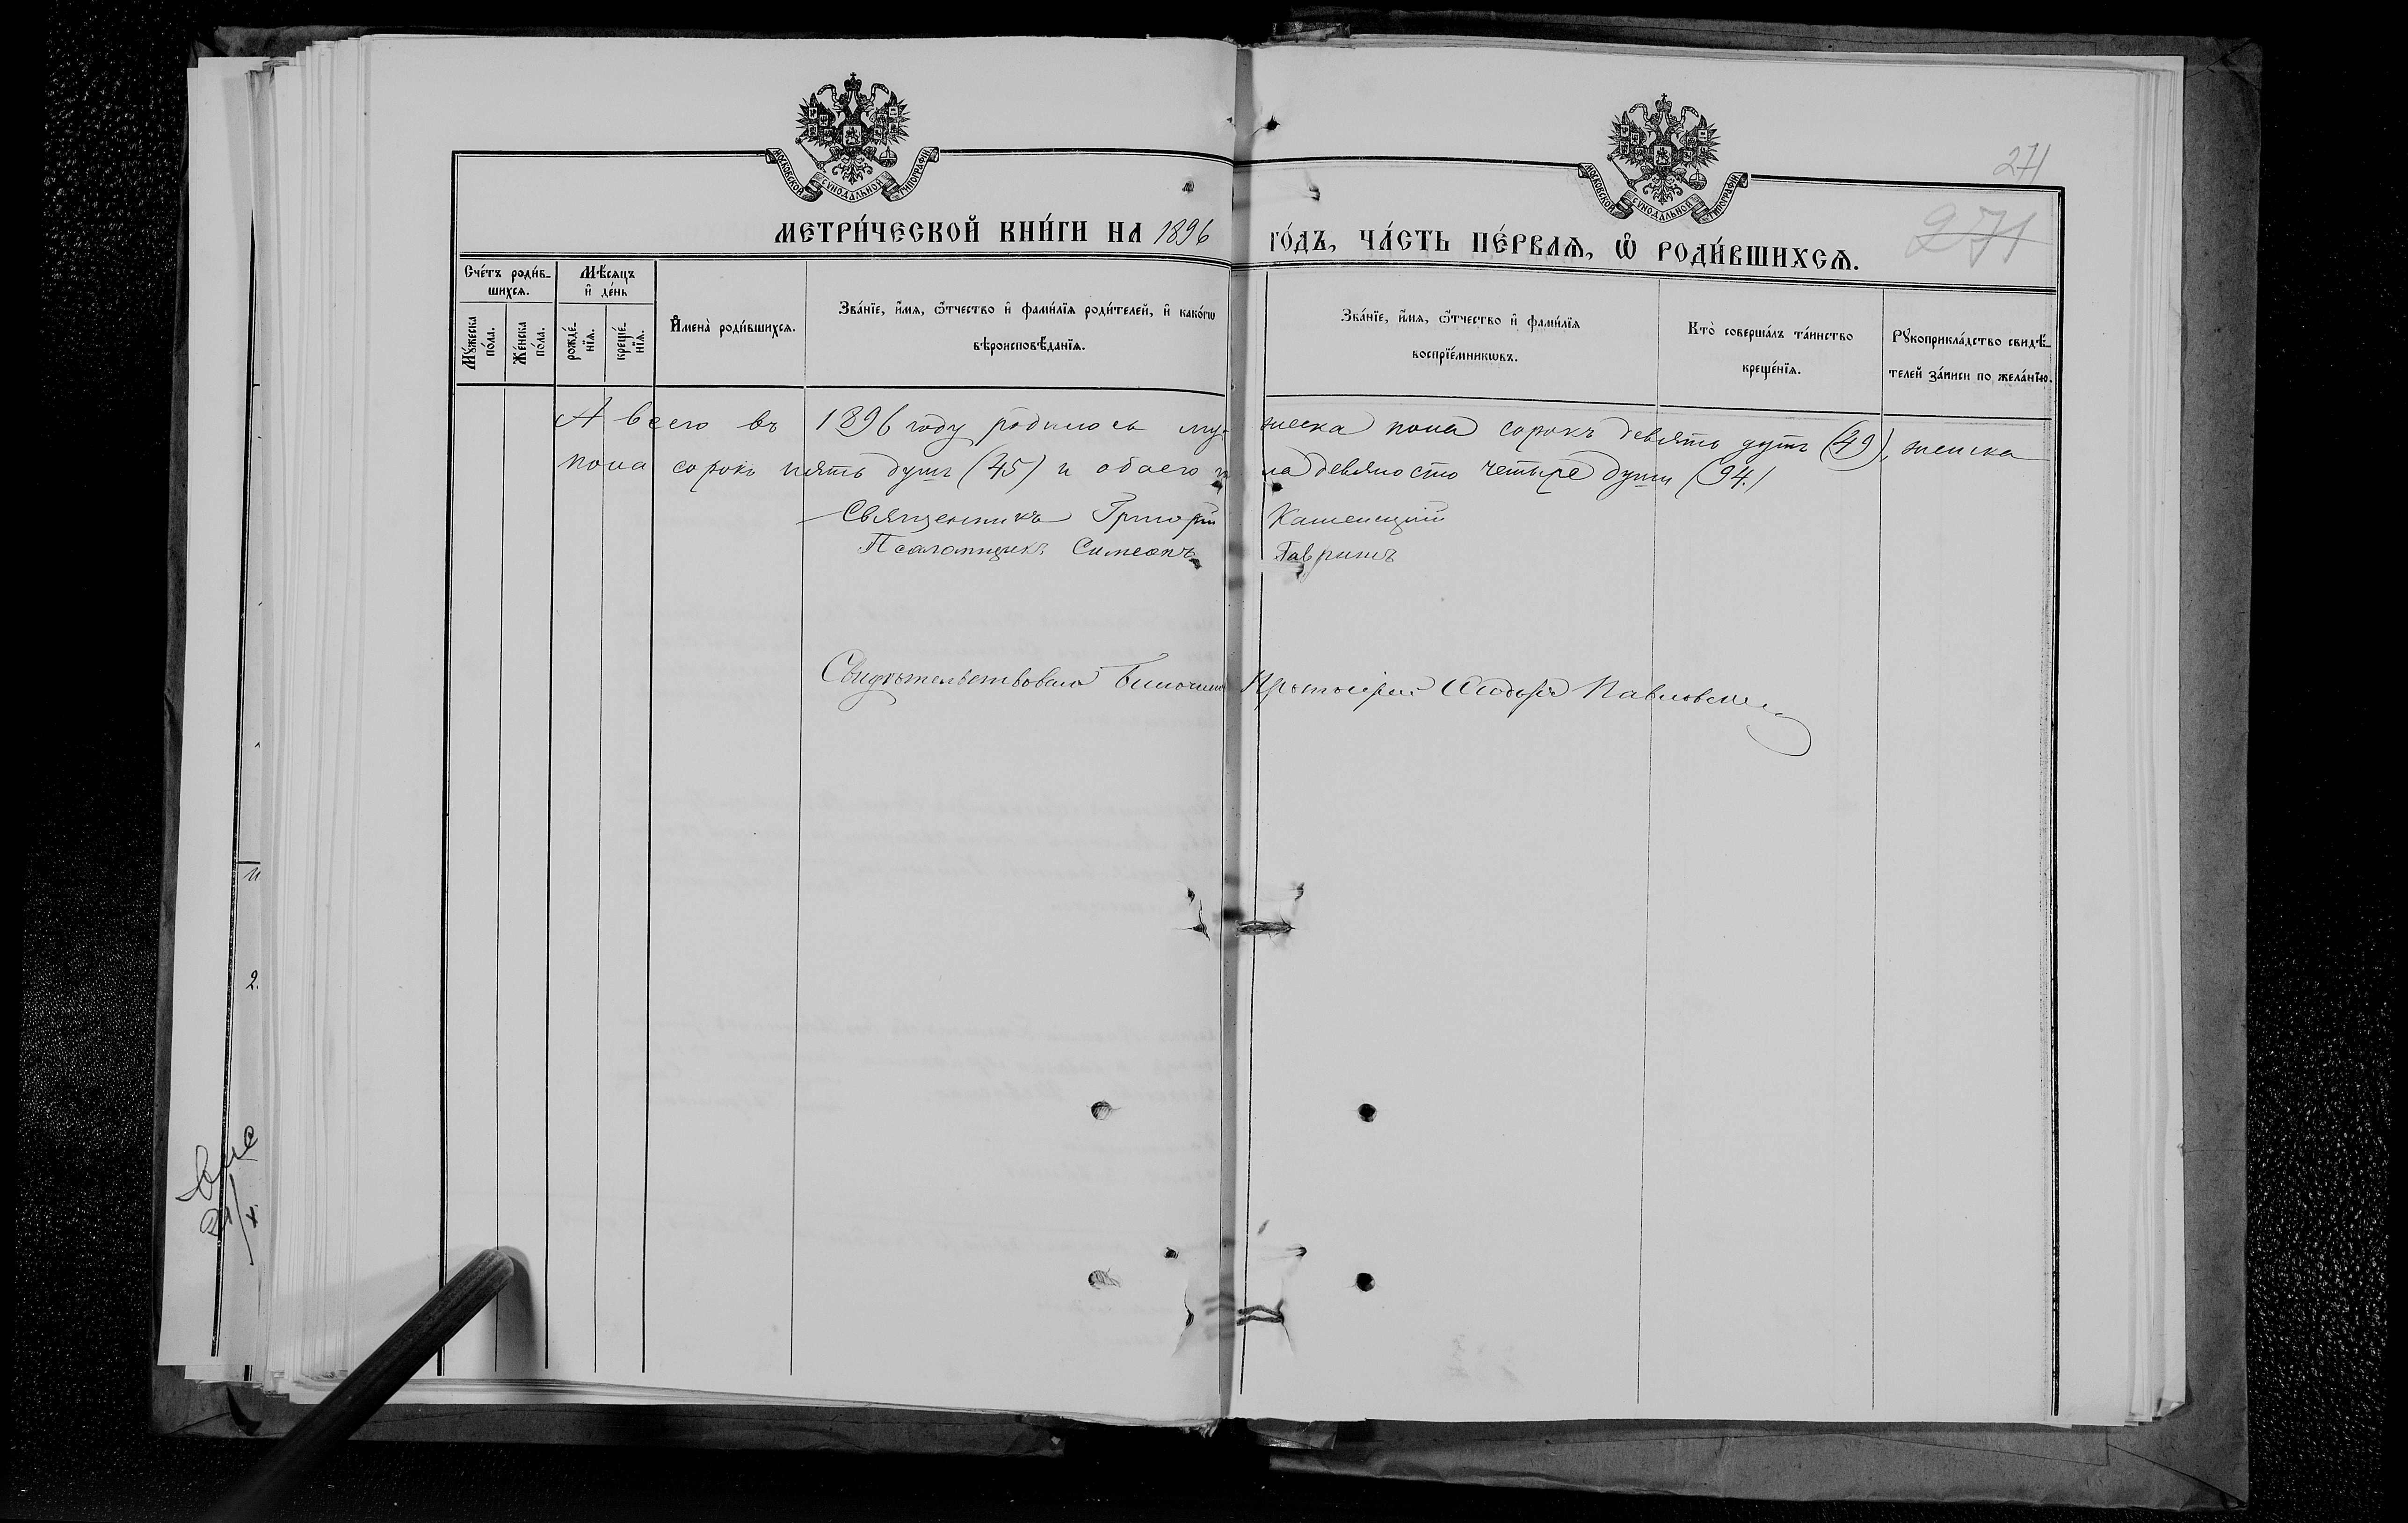 271
271
МОСКОВСКОЙ СѴНОДАЛЬНОЙ ТИПОГРАФІИ
МОСКОВСКОЙ СѴНОДАЛЬНОЙ ТИПОГРАФІИ
МЕТРИ́ЧЕСКОЙ КНИ́ГИ НА 1896 ГО́ДЪ, ЧА́СТЬ ПЕ́РВАѦ, Ѿ РОДИ́ВШИХСѦ.
Сче́тъ роди́в-
шихсѧ.
Мꙋ́жеска
по́ла.
Же́нска
по́ла.
Мѣ́сѧцъ
и҆ де́нь
рожде́-
нїѧ.
креще́-
нїѧ.
И҆мена̀ роди́вшихсѧ.
Зва́нїе, и҆́мѧ, ѻ҆́тчество и҆ фами́лїѧ роди́телей, и҆ како́гѡ
вѣроисповѣ́данїѧ.
Зва́нїе, и҆́мѧ, ѻ҆́тчество и҆ фами́лїѧ
воспрїе́мникѡвъ.
Кто̀ соверша́лъ та́инство
креще́нїѧ.
Рꙋкоприкла́дство свидѣ́-
телей за́писи по жела́нїю.
А всего въ 1896 году родилось му- жеска пола сорокъ девять душъ (49), женска
пола сорокъ пять душъ (45) и обоего по ла девяносто четыре души (94.)
Священникъ Григорій Каменецкій
Псаломщикъ Симеонъ Гавришъ
Свидѣтельствовалъ Благочин Протоіерей Ѳеодоръ Павловскій
2.